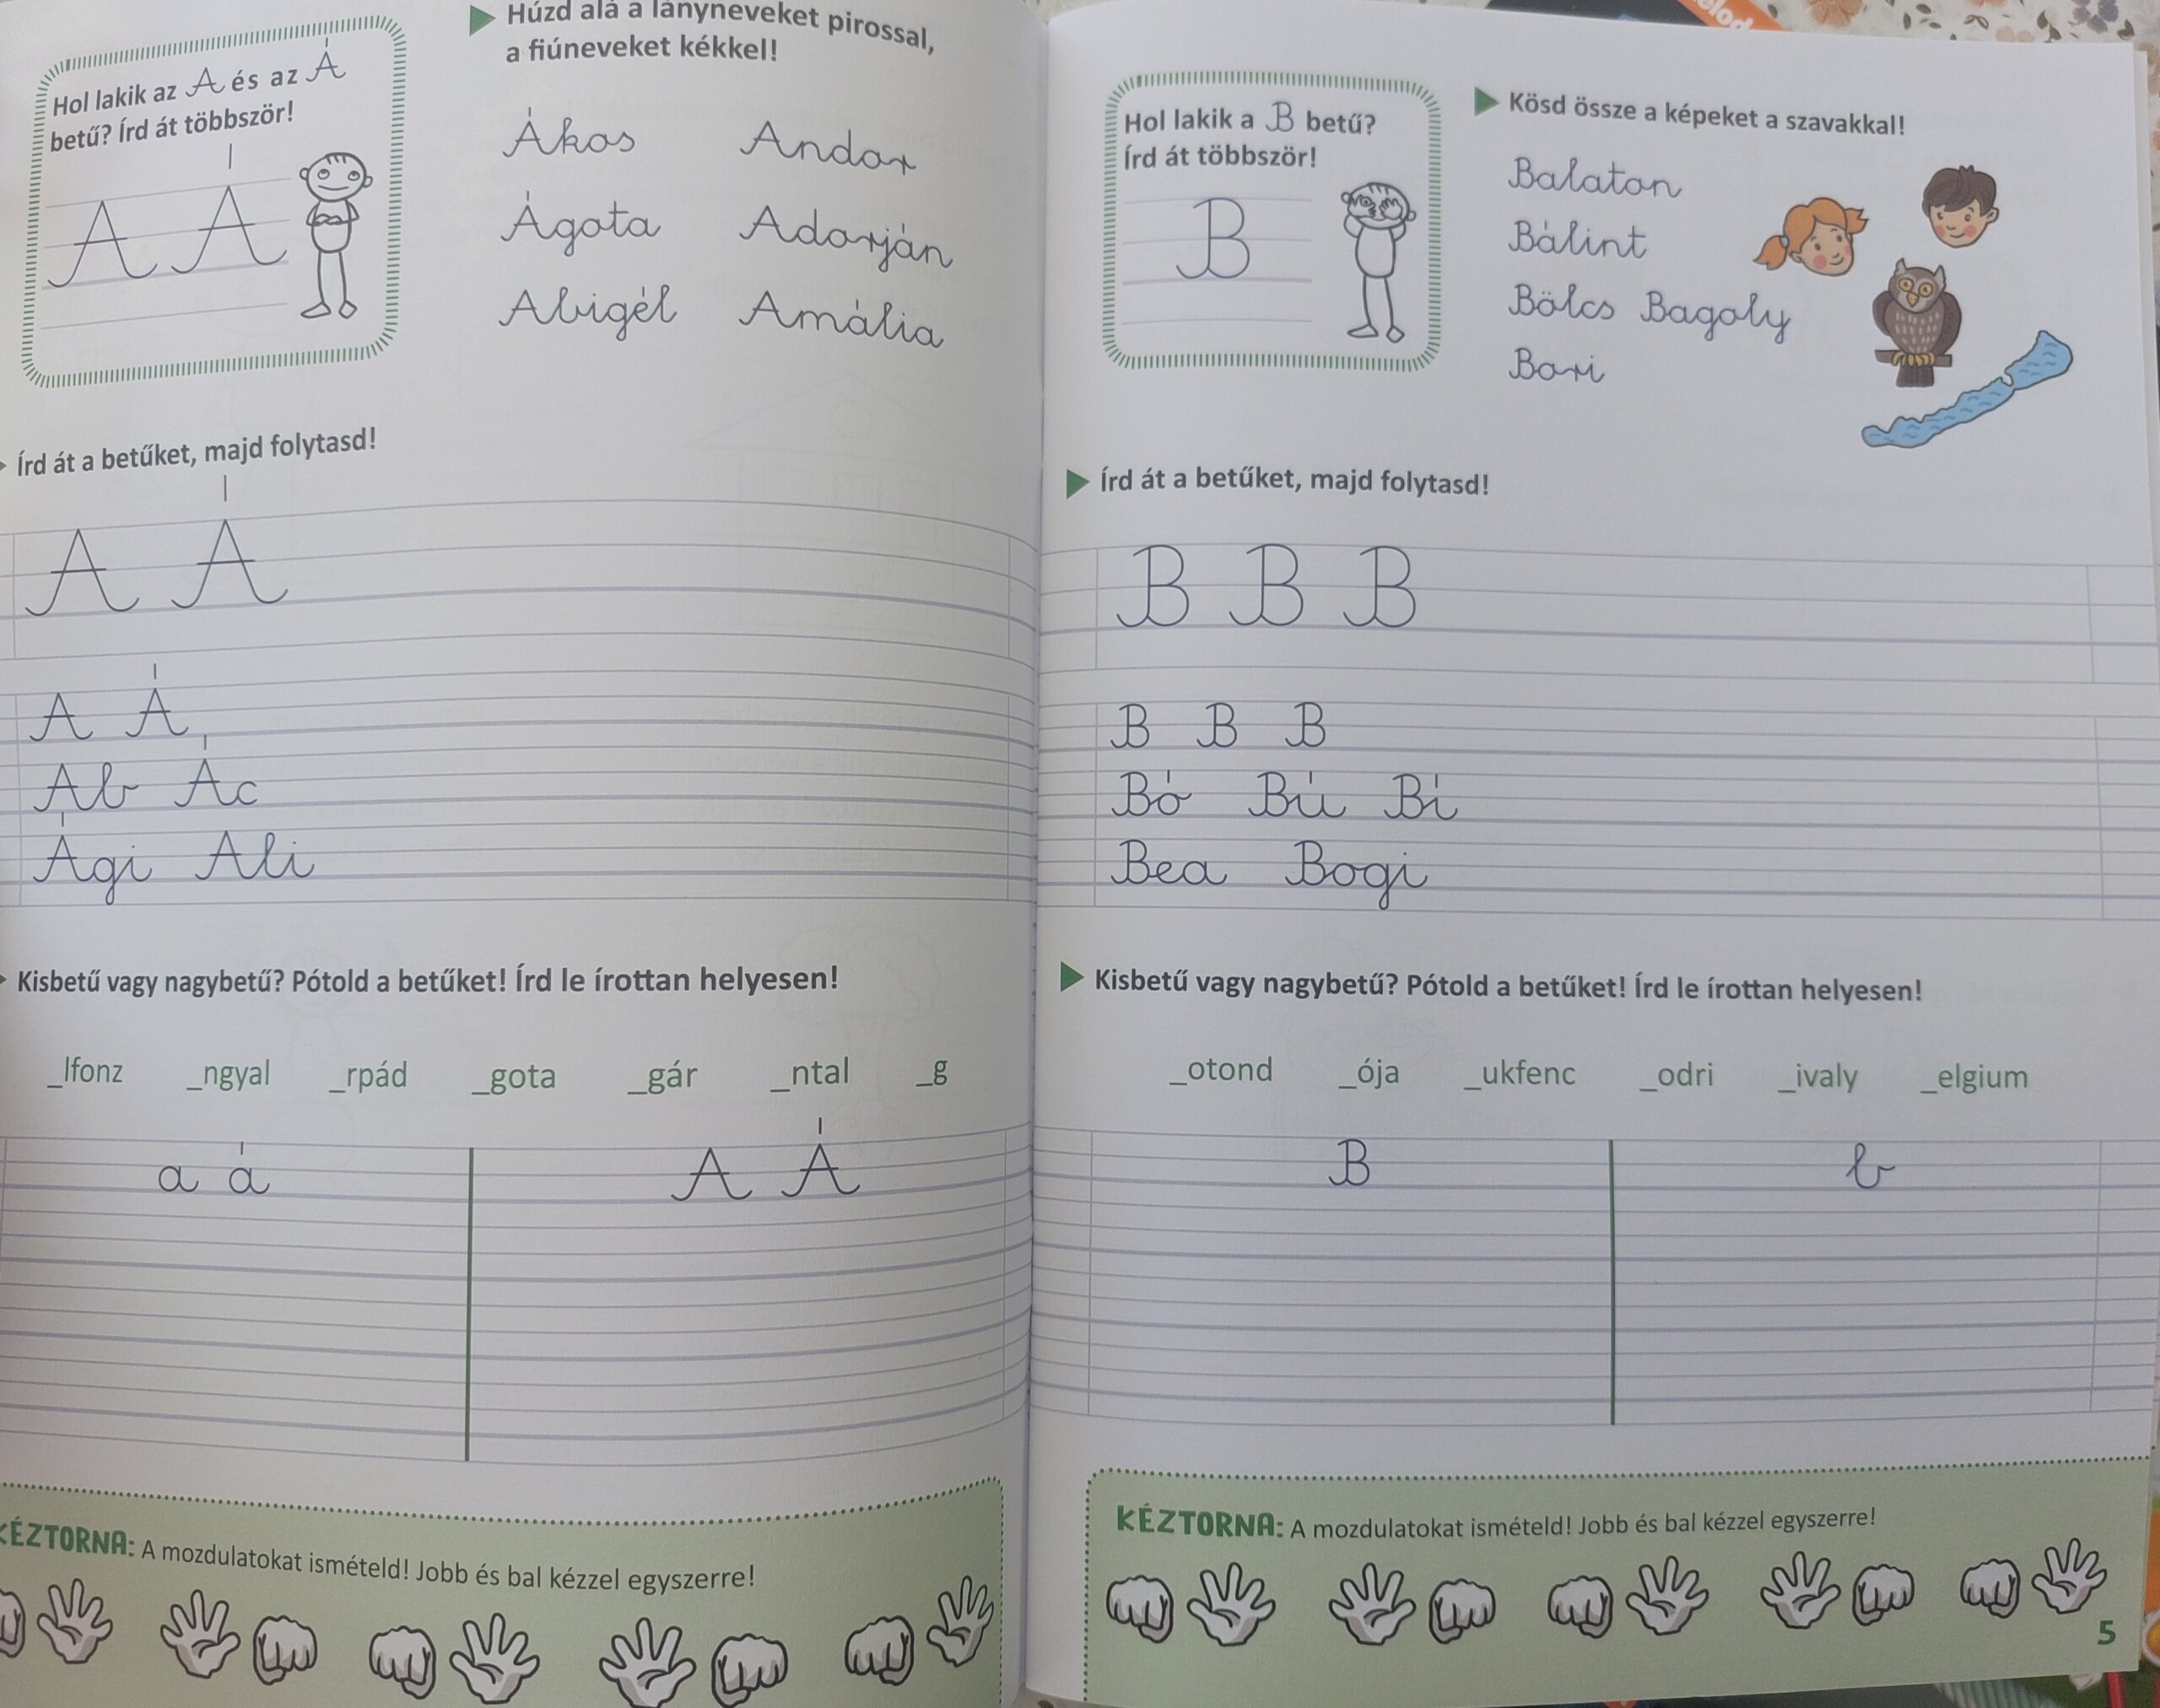 Hol lakik az A és az Á
betű? Írd át többször!
A Á
Húzd alá a lányneveket pirossal,
a fiúneveket kékkel!
Ákos Andor
Ágota Adorján
Abigél Amália
Írd át a betűket, majd folytasd!
A Á
A Á
Ab Ác
Ági Ali
Kisbetű vagy nagybetű? Pótold a betűket! Írd le írottan helyesen!
_lfonz _ngyal _rpád _gota _gár _ntal _g
a á A Á
KÉZTORNA: A mozdulatokat ismételd! Jobb és bal kézzel egyszerre!
Hol lakik a B betű?
Írd át többször!
B
Kösd össze a képeket a szavakkal!
Balaton
Bálint
Bölcs Bagoly
Bori
Írd át a betűket, majd folytasd!
B B B
B B B
Bó Bú Bí
Bea Bogi
Kisbetű vagy nagybetű? Pótold a betűket! Írd le írottan helyesen!
_otond _ója _ukfenc _odri _ivaly _elgium
B b
KÉZTORNA: A mozdulatokat ismételd! Jobb és bal kézzel egyszerre!
5